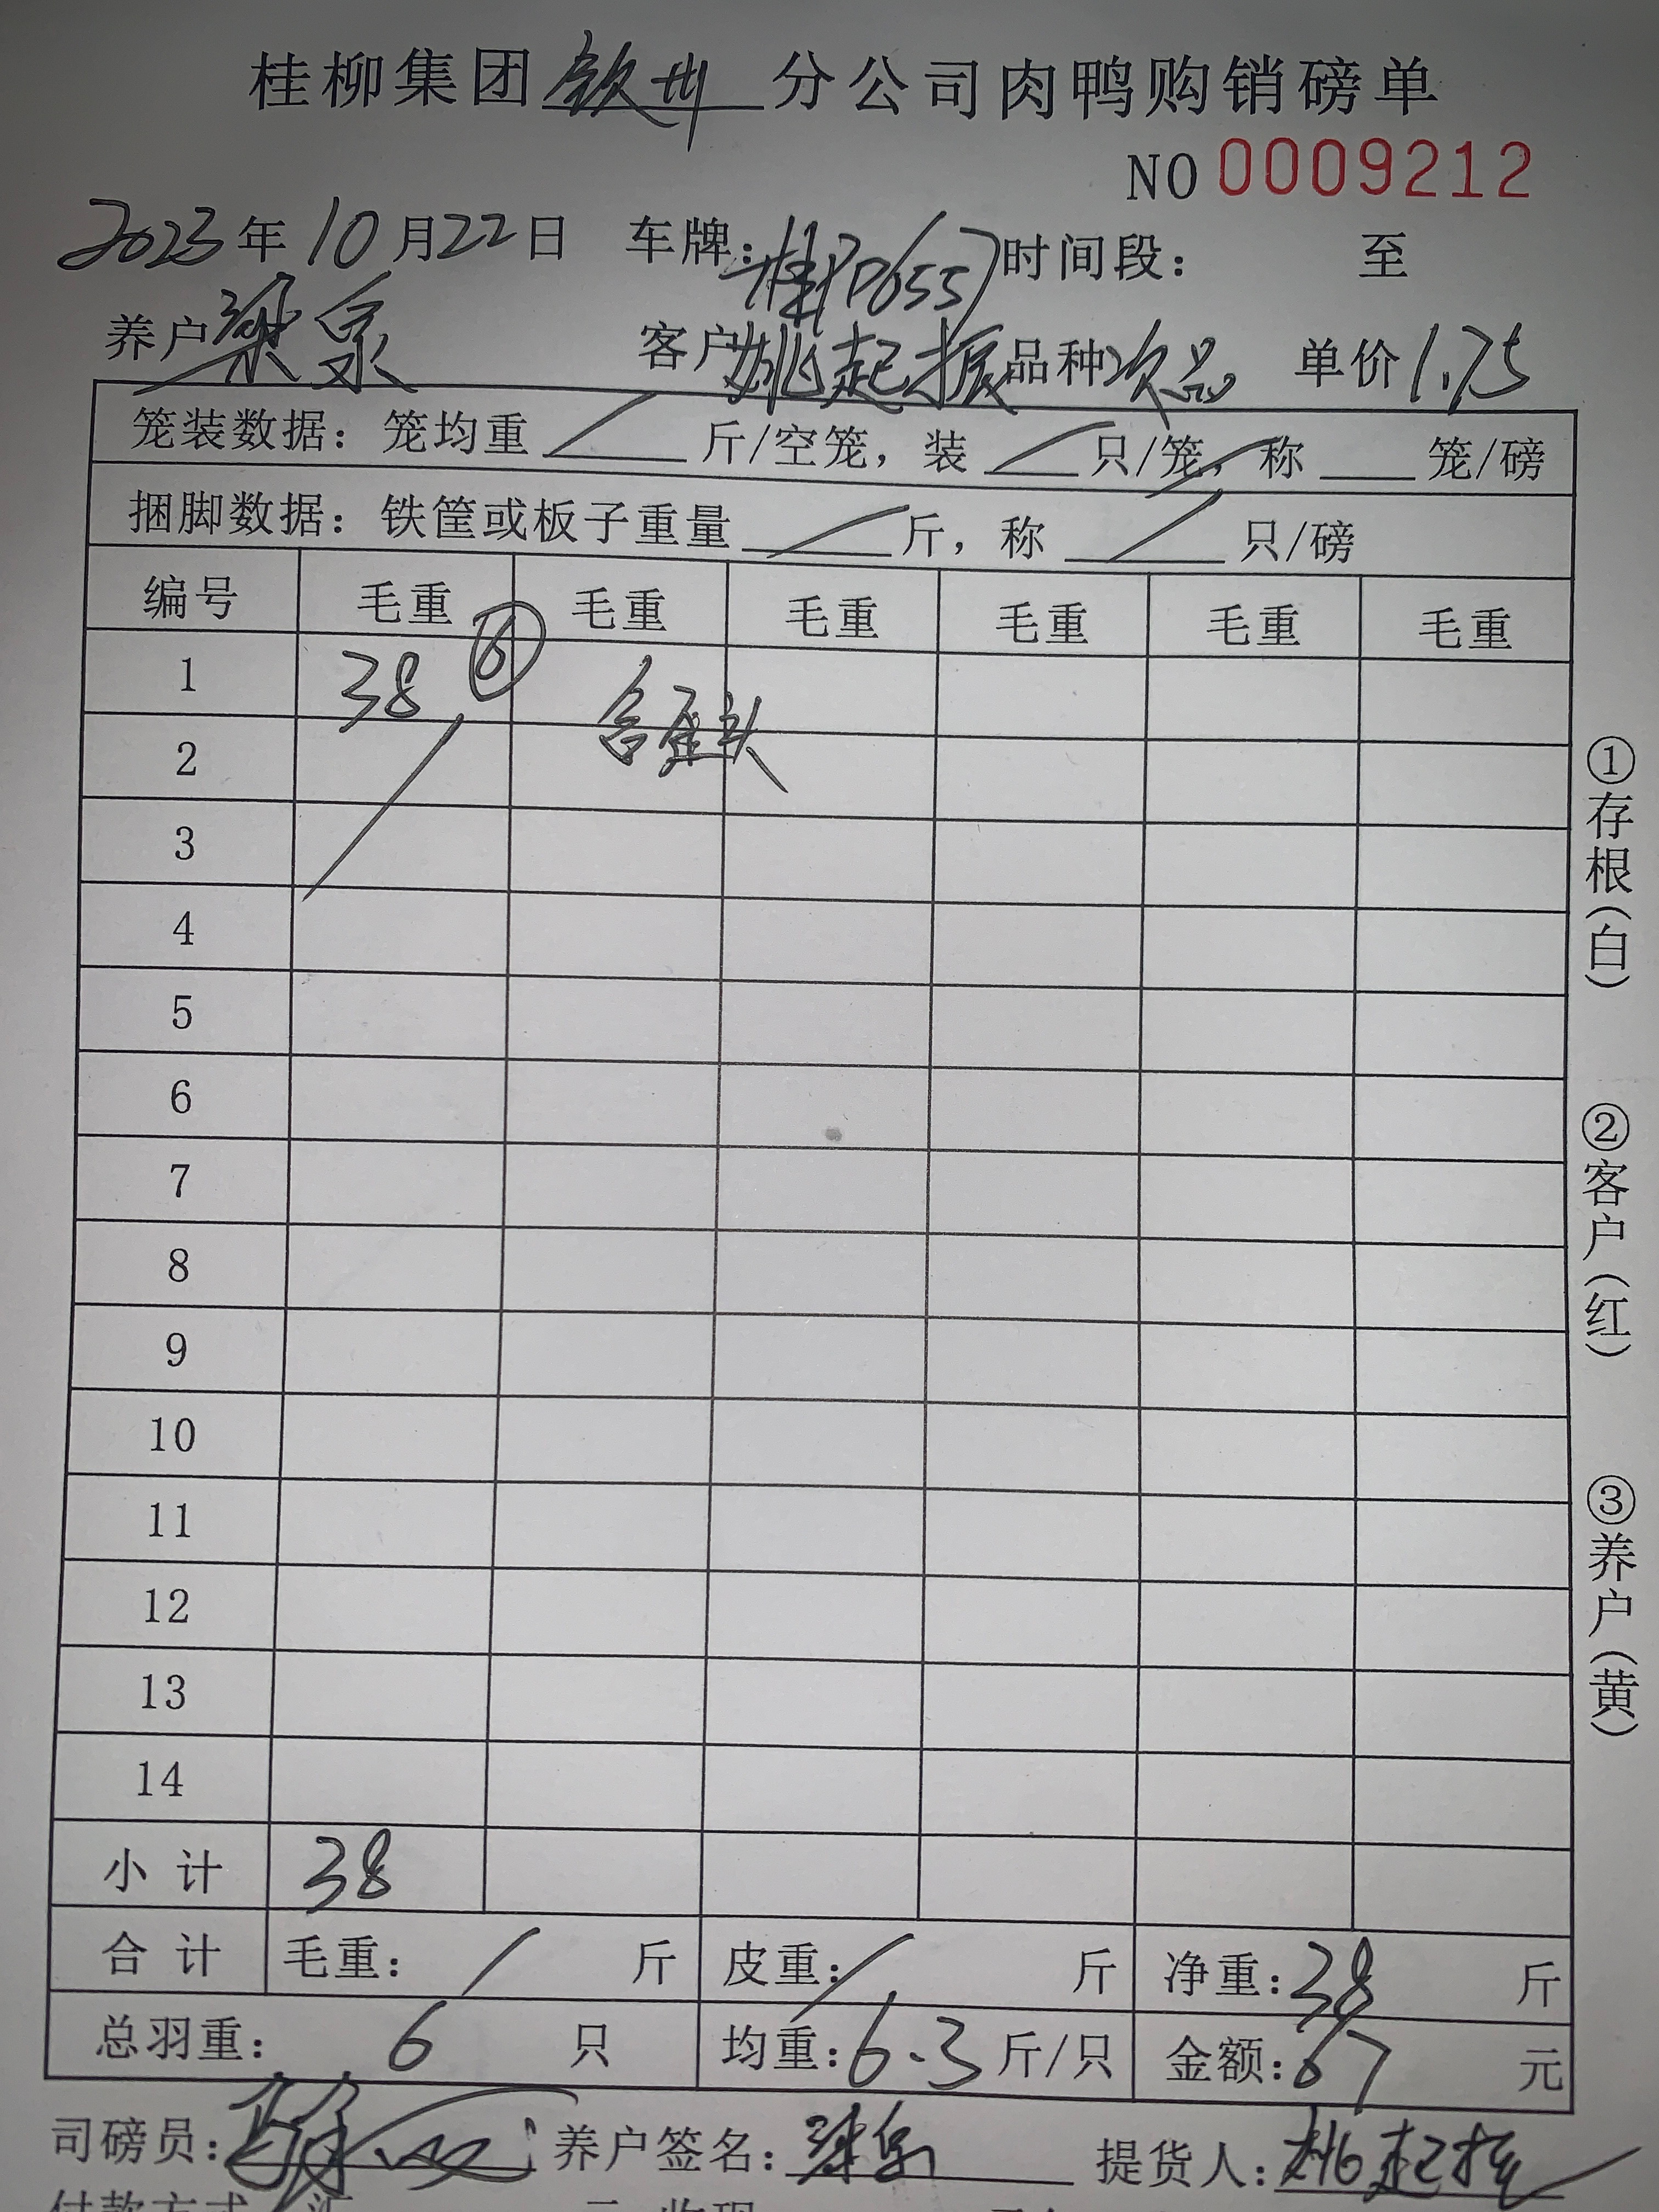 桂柳集团钦州分公司肉鸭购销磅单
NO 0009212
2023年10月22日 车牌：桂PD6557 时间段： 至
养户梁泉 客户姚起振 品种次品 单价1.75
笼装数据：笼均重 斤/空笼，装 只/笼，称 笼/磅
捆脚数据：铁筐或板子重量 斤，称 只/磅
编号 毛重 毛重 毛重 毛重 毛重 毛重
1 38 ⑥ 含歪头
2
3
4
5
6
7
8
9
10
11
12
13
14
小计 38
合计 毛重： 斤 皮重： 斤 净重：38 斤
总羽重： 6 只 均重：6.3 斤/只 金额：67 元
司磅员： 养户签名：梁泉 提货人：姚起振
①存根（白）
②客户（红）
③养户（黄）